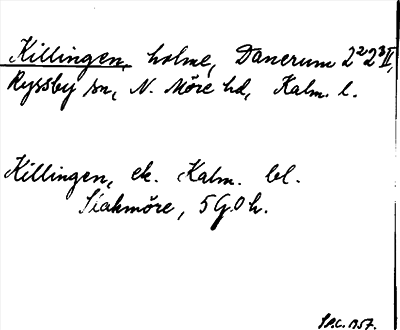 Killingen, holme, Danerum 2²2³ II,
Ryssby sn, N. Möre hd, Kalm. l.
Killingen, ek. Kalm. bl.
Siakmöre, 5 G.O h.
1957.